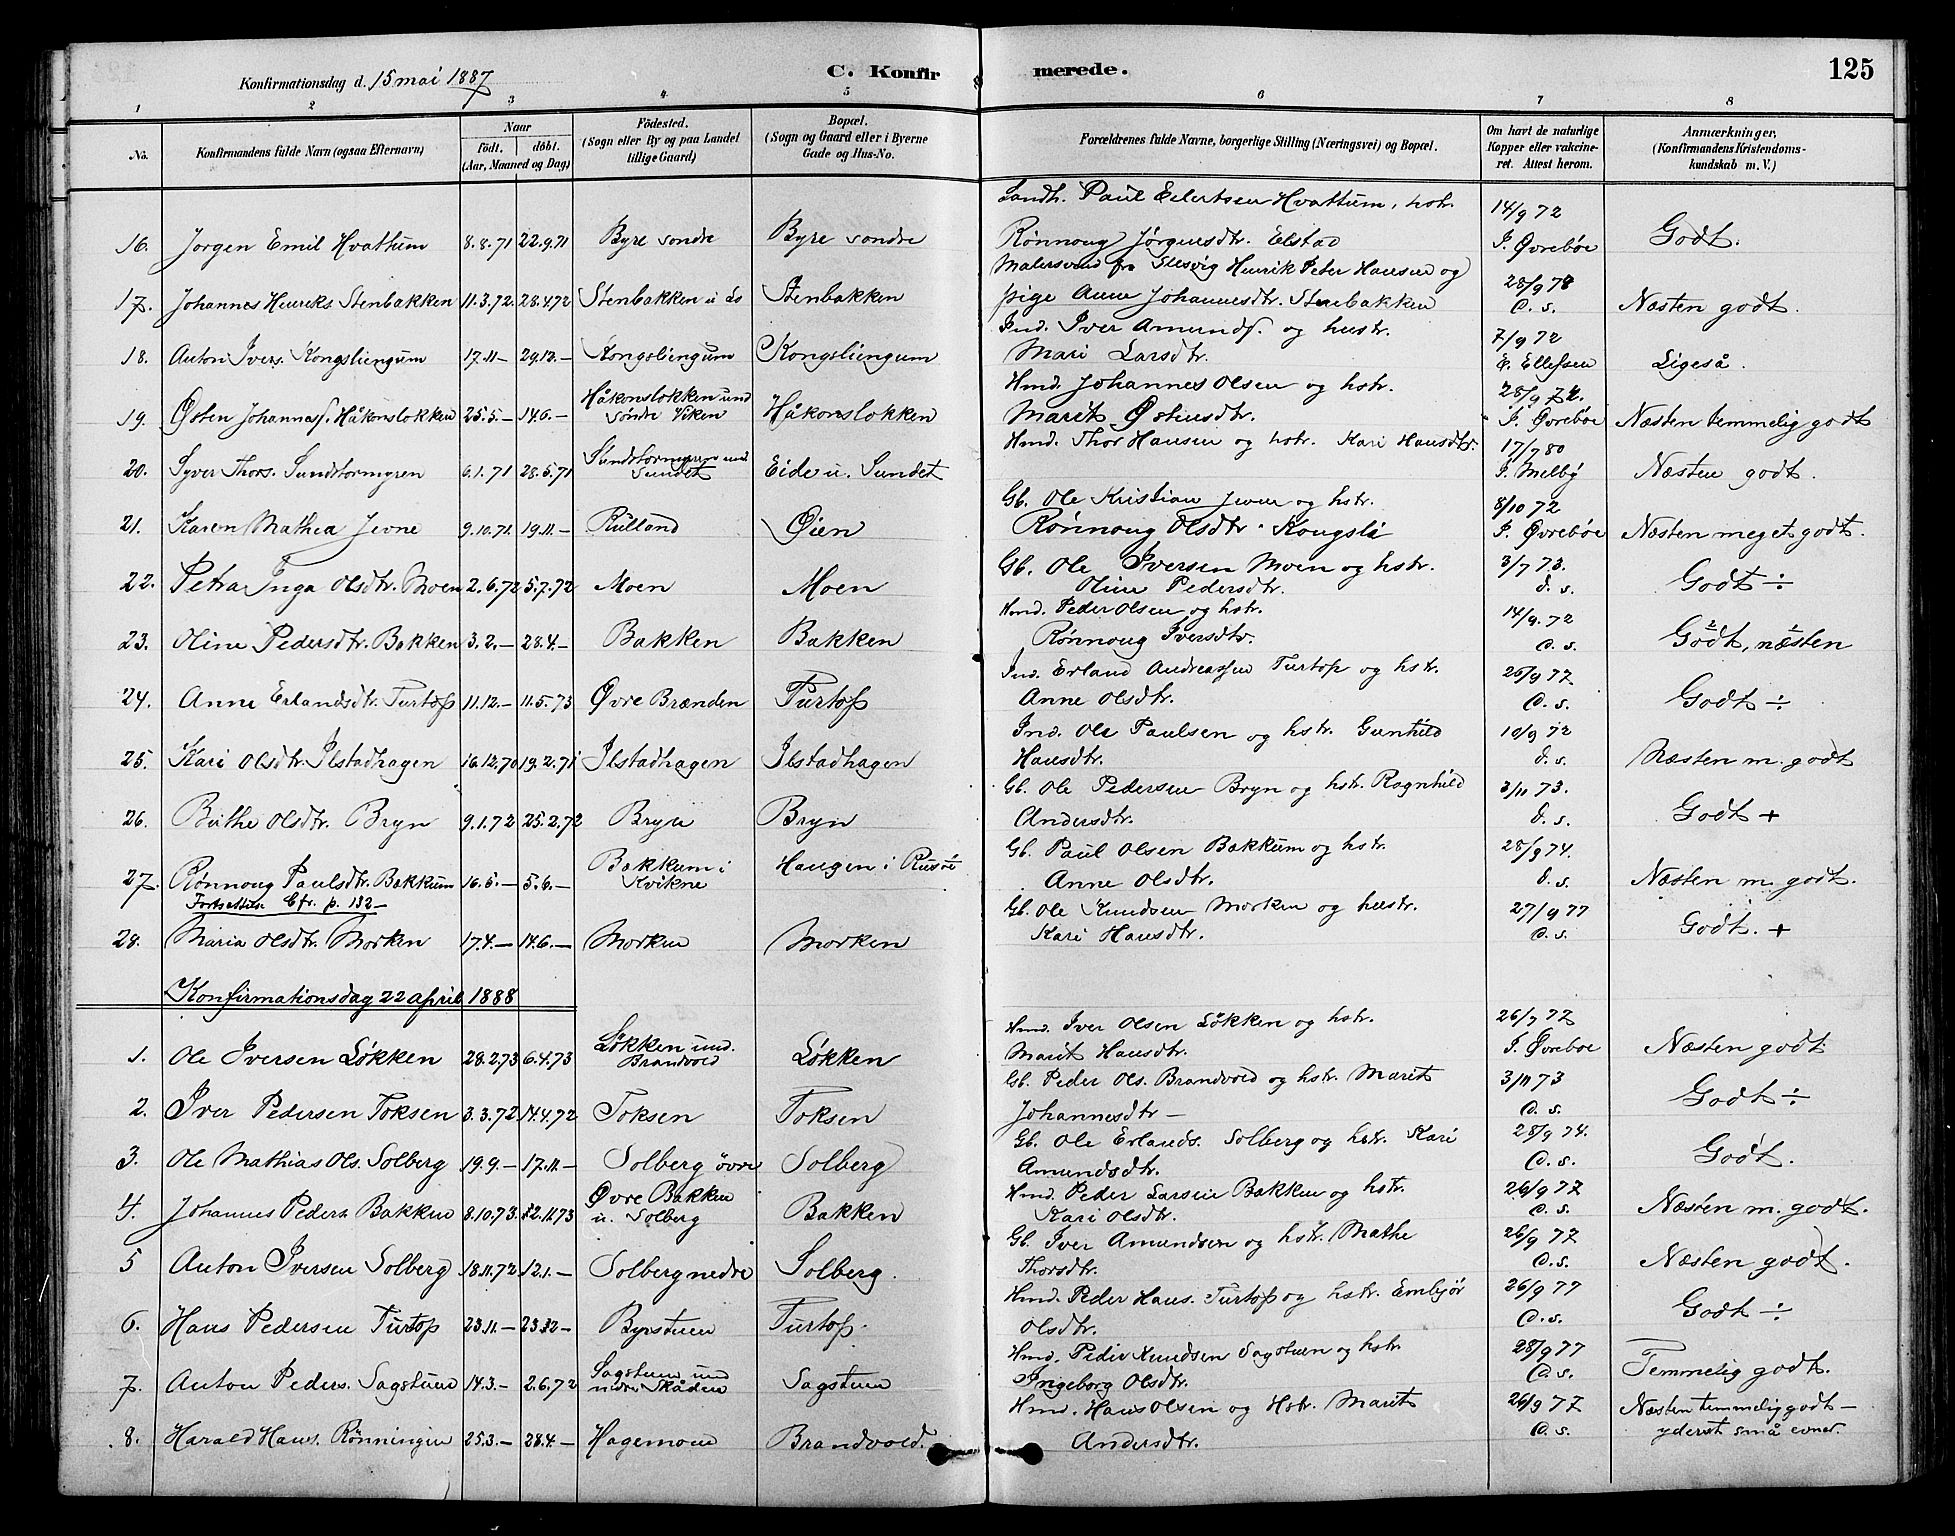 Konfirmationsdag d. 15 mai 1887 C. Konfir merede. 125
1 2 3 4 5 6 7 8
No. Konfirmandens fulde Navn (ogsaa Efternavn) Naar födt. döbt. (Aar, Maaned og Dag) Födested. (Sogn eller By og paa Landet tillige Gaard) Bopæl. (Sogn og Gaard eller i Byerne Gade og Hus-No. Forældrenes fulde Navne, borgerlige Stilling (Næringsvei) og Bopæl. Om havt de naturlige Kopper eller vakcineret. Attest herom. Anmærkninger, (Konfirmandens Kristendomskundskab m. V.)
Landh. Paul Eilertsen Hvattum, hstr. 14/9 72
16. Jorgen Emil Hvattum 8.8.71 22.9.71 Byre sondre Byre sondre Rønnoug Jørgensdtr. Elstad J. Øvrebøe Godt.
Malersvend fra Slesvig Henrik Peter Hansen og 28/9 78
17. Johannes Henriks Stenbakken 11.3.72. 28.4.72 Stenbakken u. Lo Stenbakken pige Anne Johannesdtr. Stenbakken d. s. Næsten godt.
Ind. Iver Amunds. og hustr. 7/9 72
18. Anton Ivers. Kongsliengum 17.11– 29.12.– Kongsliengum Kongsliengum Mari Larsdtr. E. Ellefsen Ligeså.
Håkonsløkken und Hmd. Johannes Olsen og hstr. 28/9 72.
19. Østen Johannes. Håkonsløkken 25.5– 14.6.– søndre Viken Håkonsløkken Marit Østensdtr. J. Øvrebøe Næsten temmelig godt
Sundstormyren und Hmd. Thor Hansen og hstr. Kari Hansdtr. 17/7 80
20. Syver Thors. Sundstormyren 6.1.71 28.5.71 Sundet Eide u. Sundet J. Melby Næsten godt.
Gb. Ole Kristian Jevne og hstr. 8/10 72
21. Karen Mathea Jevne 9.10.71. 19.11.– Rulland Øien Rønnoug Olsdtr. Kongsli J. Øvrebøe Næsten meget godt.
Gb. Ole Iversen Moen og hstr. 3/7 73.
22. Petra Inga Olsdtr. Moen 2.6.72 5.7.72 Moen Moen Oline Pedersdtr. d. s. Godt ÷
Hmd. Peder Olsen og hstr. 14/9. 72
23. Oline Pedersdtr. Bakken 3.2.– 28.4.– Bakken Bakken Rønnoug Iversdtr. d. s. Godt, næsten
Ind. Erland Andreassen Turtop og hstr. 26/9 77
24. Anne Erlandsdtr. Turtop 11.12.– 11.5.73 Øvre Brænden Turtop Anne Olsdtr. d. s. Godt ÷
Ind. Ole Paulsen og hstr. Gunhild 10/9 72
25. Kari Olsdtr. Ilstadhagen 16.12.70 19.2.71 Ilstadhagen Ilstadhagen Hansdtr. d. s. Næsten m. godt
Gb. Ole Pedersen Bryn og hstr. Ragnhild 3/11 73.
26. Bathe Olsdtr. Bryn 9.1.72 25.2.72 Bryn Bryn Andersdtr. d. s. Godt +
Bakkum i Haugen i Gb. Paul Olsen Bakkum og hstr. 28/9 74.
27. Rønnoug Paulsdtr. Bakkum 16.5.– 5.6.– Kvikne Anne Olsdtr. d. s. Næsten m. godt.
Fortsættes. Cfr. p. 132– Gb. Ole Knudsen Morken og hustr. 27/9 77
28. Maria Olsdtr. Morken 17.4.– 14.6.– Morken Morken Kari Hansdtr. d. s. Godt. +
Konfirmationsdag 22 april 1888
Løkken und. Hmd. Iver Olsen Løkken og hstr. 26/9 77
1. Ole Iversen Løkken 28.2.73 6.4.73 Brandvold Løkken Marit Hansdtr. J. Øvrebøe Næsten godt
Gb. Peder Ols. Brandvold og hstr. Marit 3/11 73
2. Iver Pedersen Toksen 3.3.72 14.4.72 Toksen Toksen Johannesdtr– d. s. Godt ÷
Gb. Ole Erlands. Solberg og hstr. Kari 28/9 74.
3. Ole Mathias Ols. Solberg 19.9.– 17.11.– Solberg øvre Solberg Amundsdtr. d. s. Godt.
Øvre Bakken Hmd. Peder Larsen Bakken og hstr. 26/9 77
4. Johannes Peders. Bakken 8.10.73. 12.11.73 u. Solberg Bakken Kari Olsdtr. d. s. Næsten m. godt.
Gb. Iver Amundsen og hstr. Mathe 26/9 77
5 Anton Iversen Solberg 18.11.72 12.1.– Solberg nedre Solberg. Thorsdtr. d. s. Næsten godt.
Hmd. Peder Hans. Turtop og hstr. Embjør 26/9 77
6. Hans Pedersen Turtop 23.11.– 23.12– Byrstuen Turtop. Olsdtr. d. s. Godt ÷
Sagstuen und Hmd. Peder Knudsen Sagstuen og hstr. 28/9 77
7. Anton Peders. Sagstuen 14.3.– 2.6.72 nedre Skåden Sagstuen Ingeborg Olsdtr. d. s. Temmelig godt.
Hmd. Hans Olsen og Hstr. Marit 26/9 77 Næsten temmelig godt–
8. Harald Hans. Rønningen 25.3.– 28.4.– Hagemoen Brandvold. Andersdtr. d. s. yderst små evner.